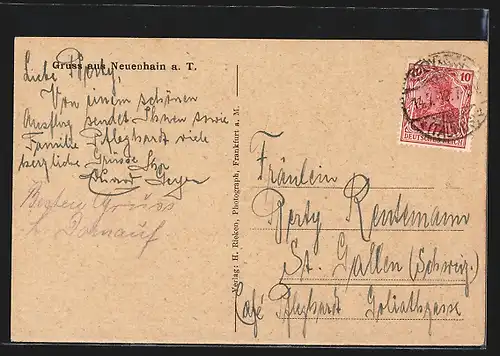 Gruss aus Neuenhain a. T.
Liebe Berty,
Von einem schönen
Ausflug sendet Ihnen sowie
Familie Pfleghardt viele
herzliche Grüsse Ihr
Eduard Geyer
Besten Gruss
Verlag: H. Rieken, Photograph, Frankfurt a. M.
10
DEUTSCHES REICH
Fräulein
Berty Rentemann
St. Gallen (Schweiz)
Café Pfleghardt Goliathgasse